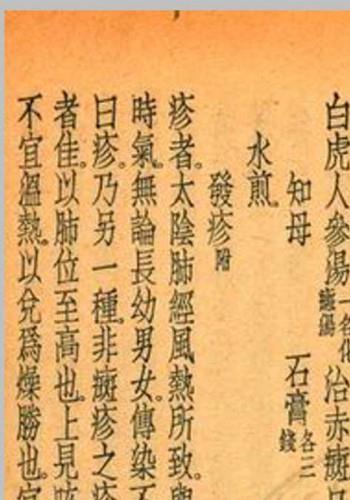 白虎人參湯一名化斑湯治赤斑
知母 石膏各三錢
水煎。
發疹附
疹者。太陰肺經風熱所致。
時氣。無論長幼男女。傳染
曰疹。乃另一種。非斑疹之
者佳。以肺位至高也。上見
不宜溫熱。以兌爲燥勝也。